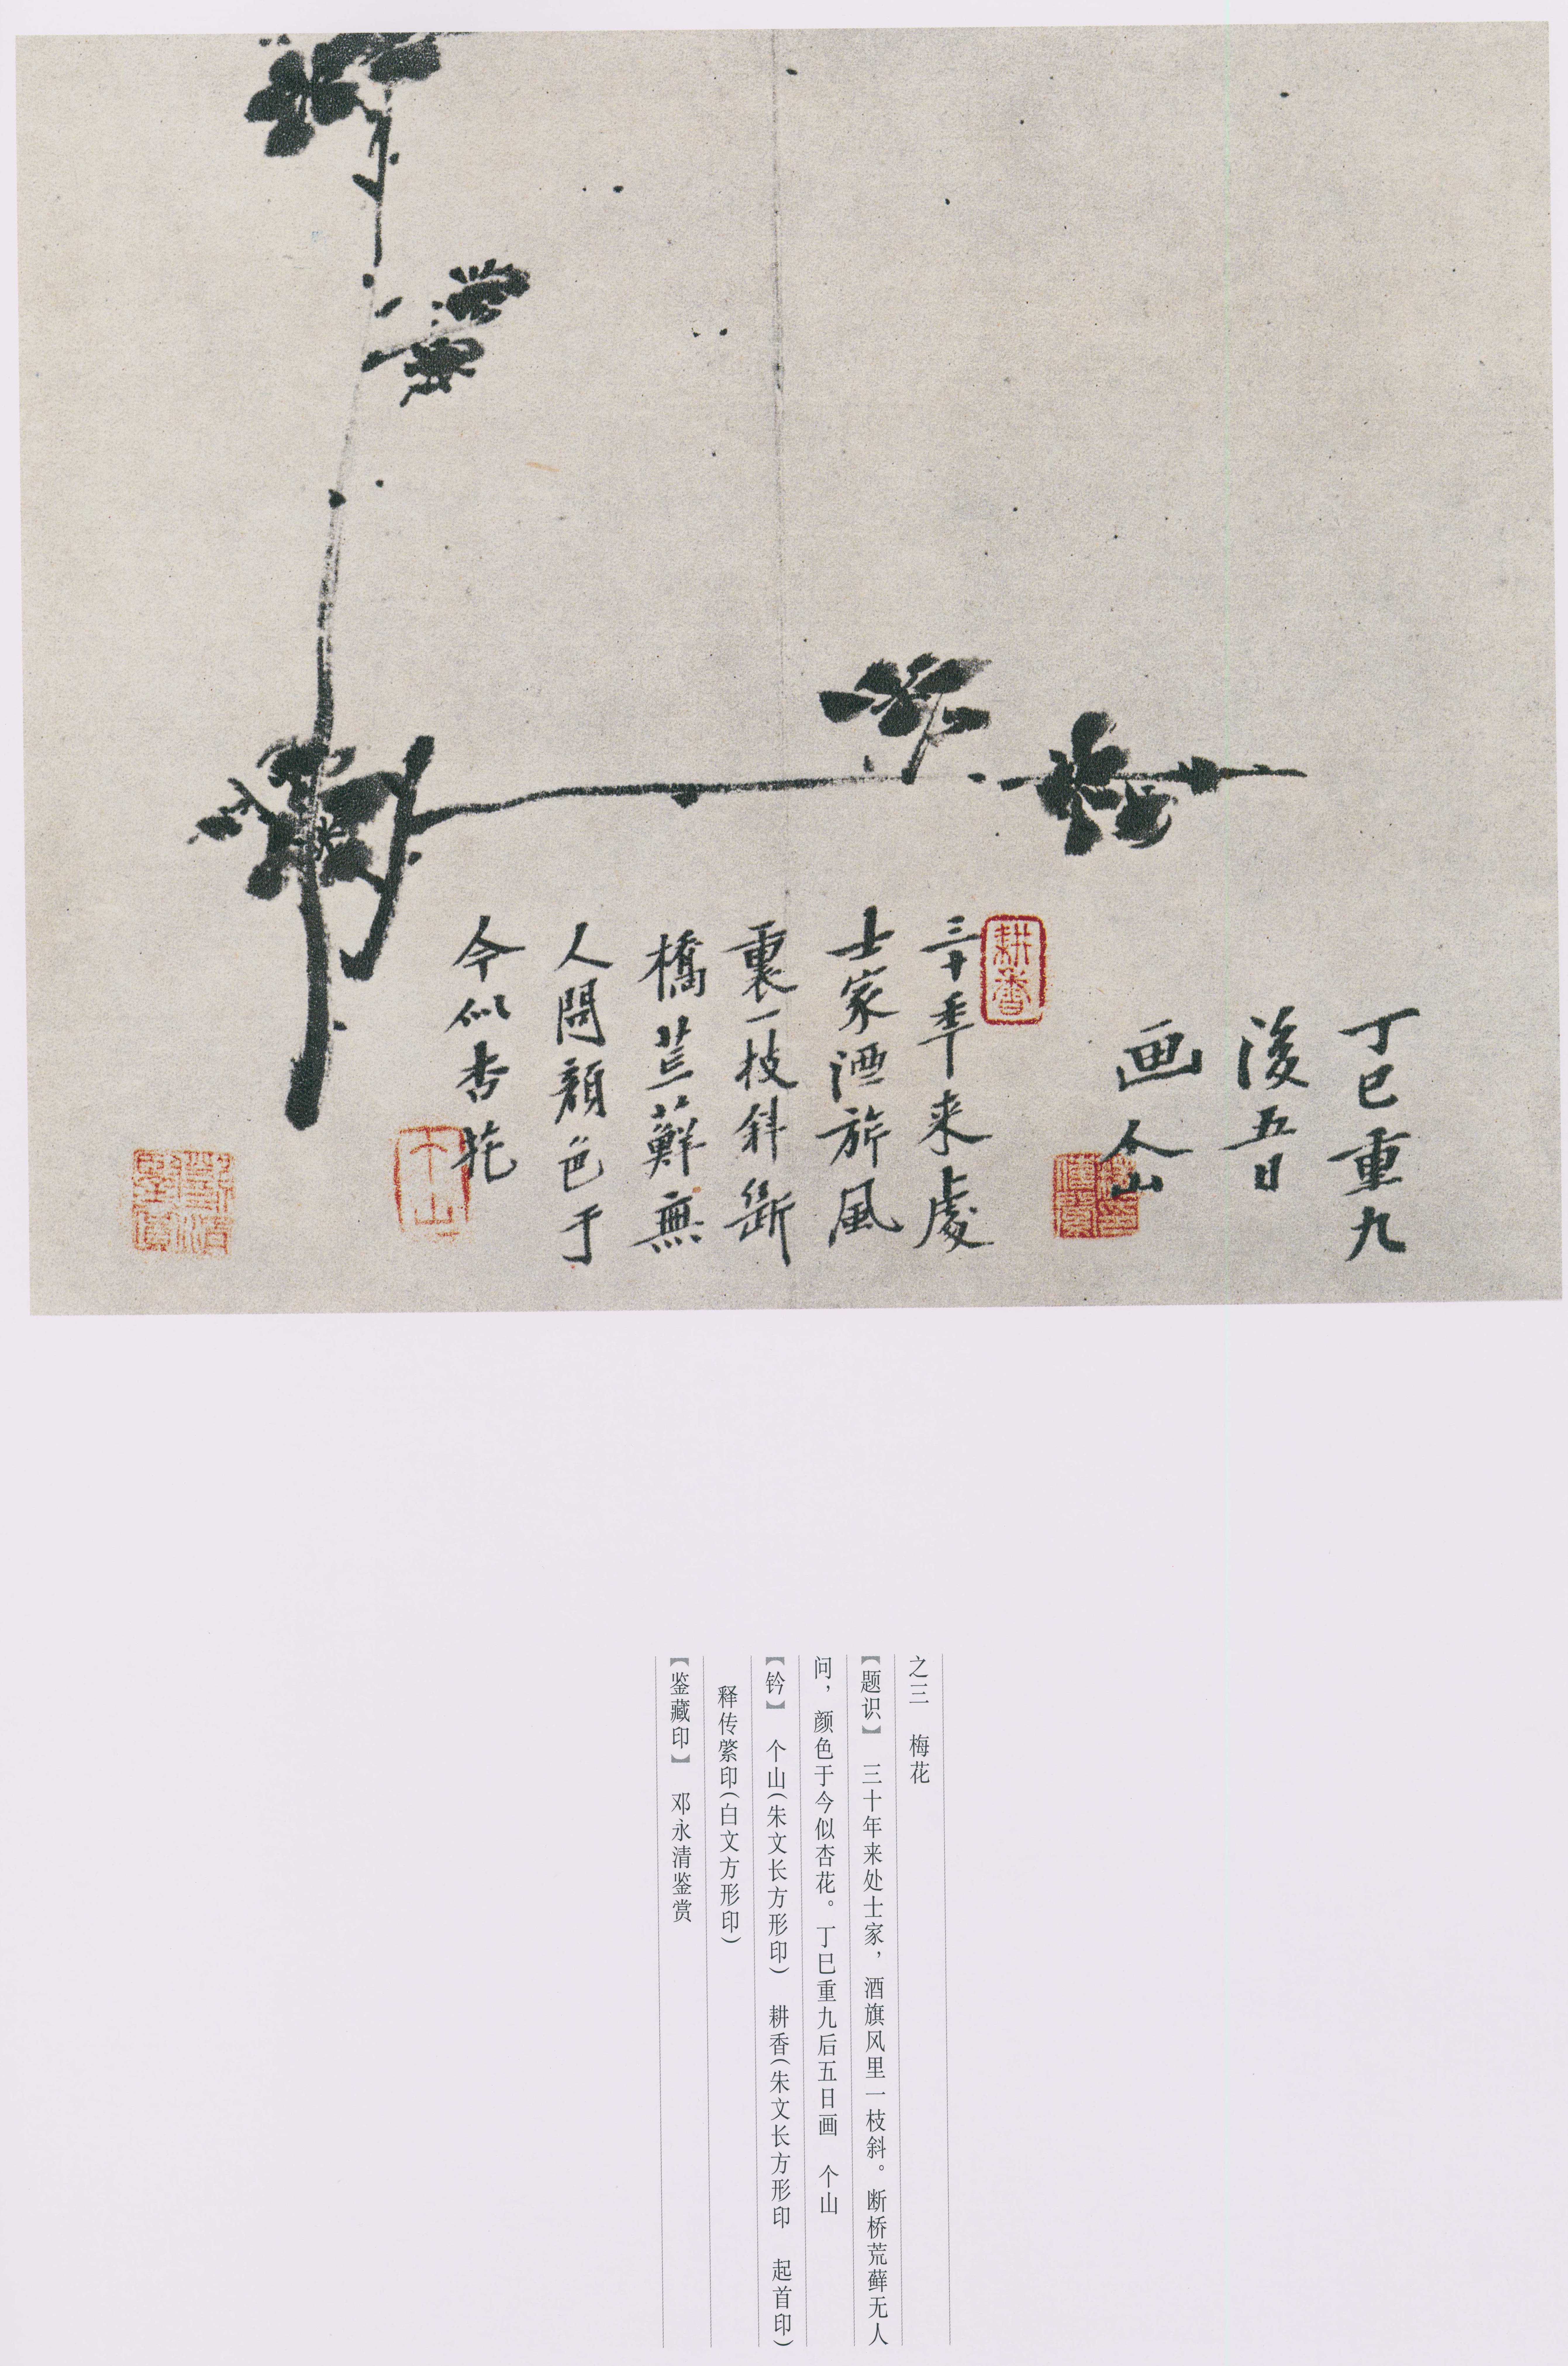 丁巳重九
後五日
画 个山
耕香
三十年来處
士家酒旂風
裏一枝斜斷
橋荒蘚無
人問顏色于
今似杏花
个山
之三 梅花
【题识】 三十年来处士家，酒旗风里一枝斜。断桥荒藓无人
问，颜色于今似杏花。丁巳重九后五日画 个山
【钤】 个山（朱文长方形印） 耕香（朱文长方形印 起首印）
释传綮印（白文方形印）
【鉴藏印】 邓永清鉴赏